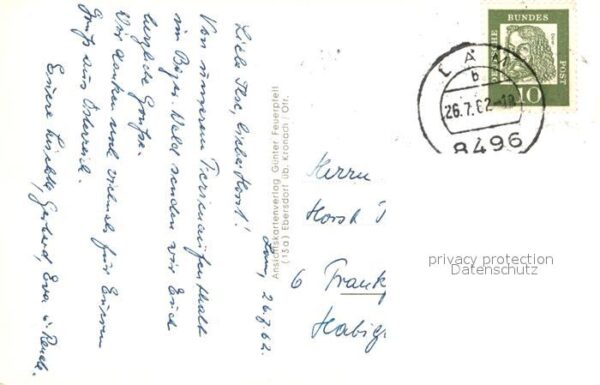 Lam, 26.7.62.
Liebe Ilse, lieber Horst!
Von unserem Ferienaufenthalt
im Bayr. Wald senden wir Euch
herzliche Grüße.
Wir danken und vielmals für Euren
Gruß aus Österreich.
Eure Gerhard, Eva u.
Ansichtskartenverlag Günter Feuerpfeil
(13a) Ebersdorf üb. Kronach / Ofr.
DEUTSCHE BUNDES POST
Dürer
10
LAM
b
26.7.62-18
8496
Herrn
Horst
6 Frankf
Habig
privacy protection
Datenschutz